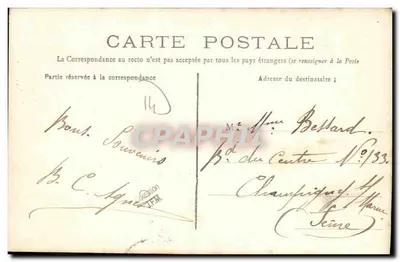 CARTE POSTALE
La Correspondance au recto n'est pas acceptée par tous les pays étrangers (se renseigner à la Poste
Partie réservée à la correspondance
Adresse du destinataire :
14
Bons Souvenirs
B. C.
Mme Bessard
Bd du Centre No 133
Champigny s/ Marne
(Seine)
CPAPHIL